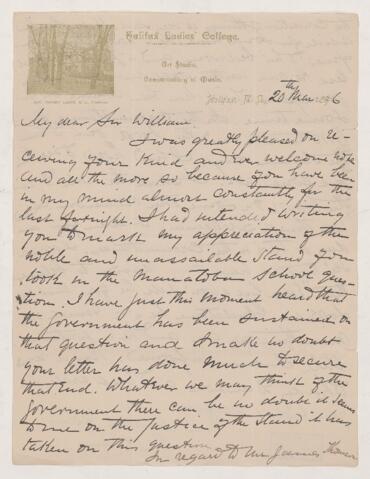 Halifax Ladies' College.
Art Studio.
Conservatory of Music.
REV. ROBERT LAING, M.A., 
Halifax, N. S., 20th Mar 1896
My dear Sir William
I was greatly pleased on re-
ceiving your kind and ever welcome note
and all the more so because you have been
in my mind almost constantly for the
last fortnight. I had intended writing
you to mark my appreciation of the
noble and unassailable stand you
took in the Manatoba School ques-
tion. I have just this moment heard that
the Government has been sustained on
that question and I make no doubt
your letter has done much to secure
that End. Whatever we may think of the
Government there can be no doubt it seems
to me on the justice of the stand it has
taken on this question
In regard to Mr James